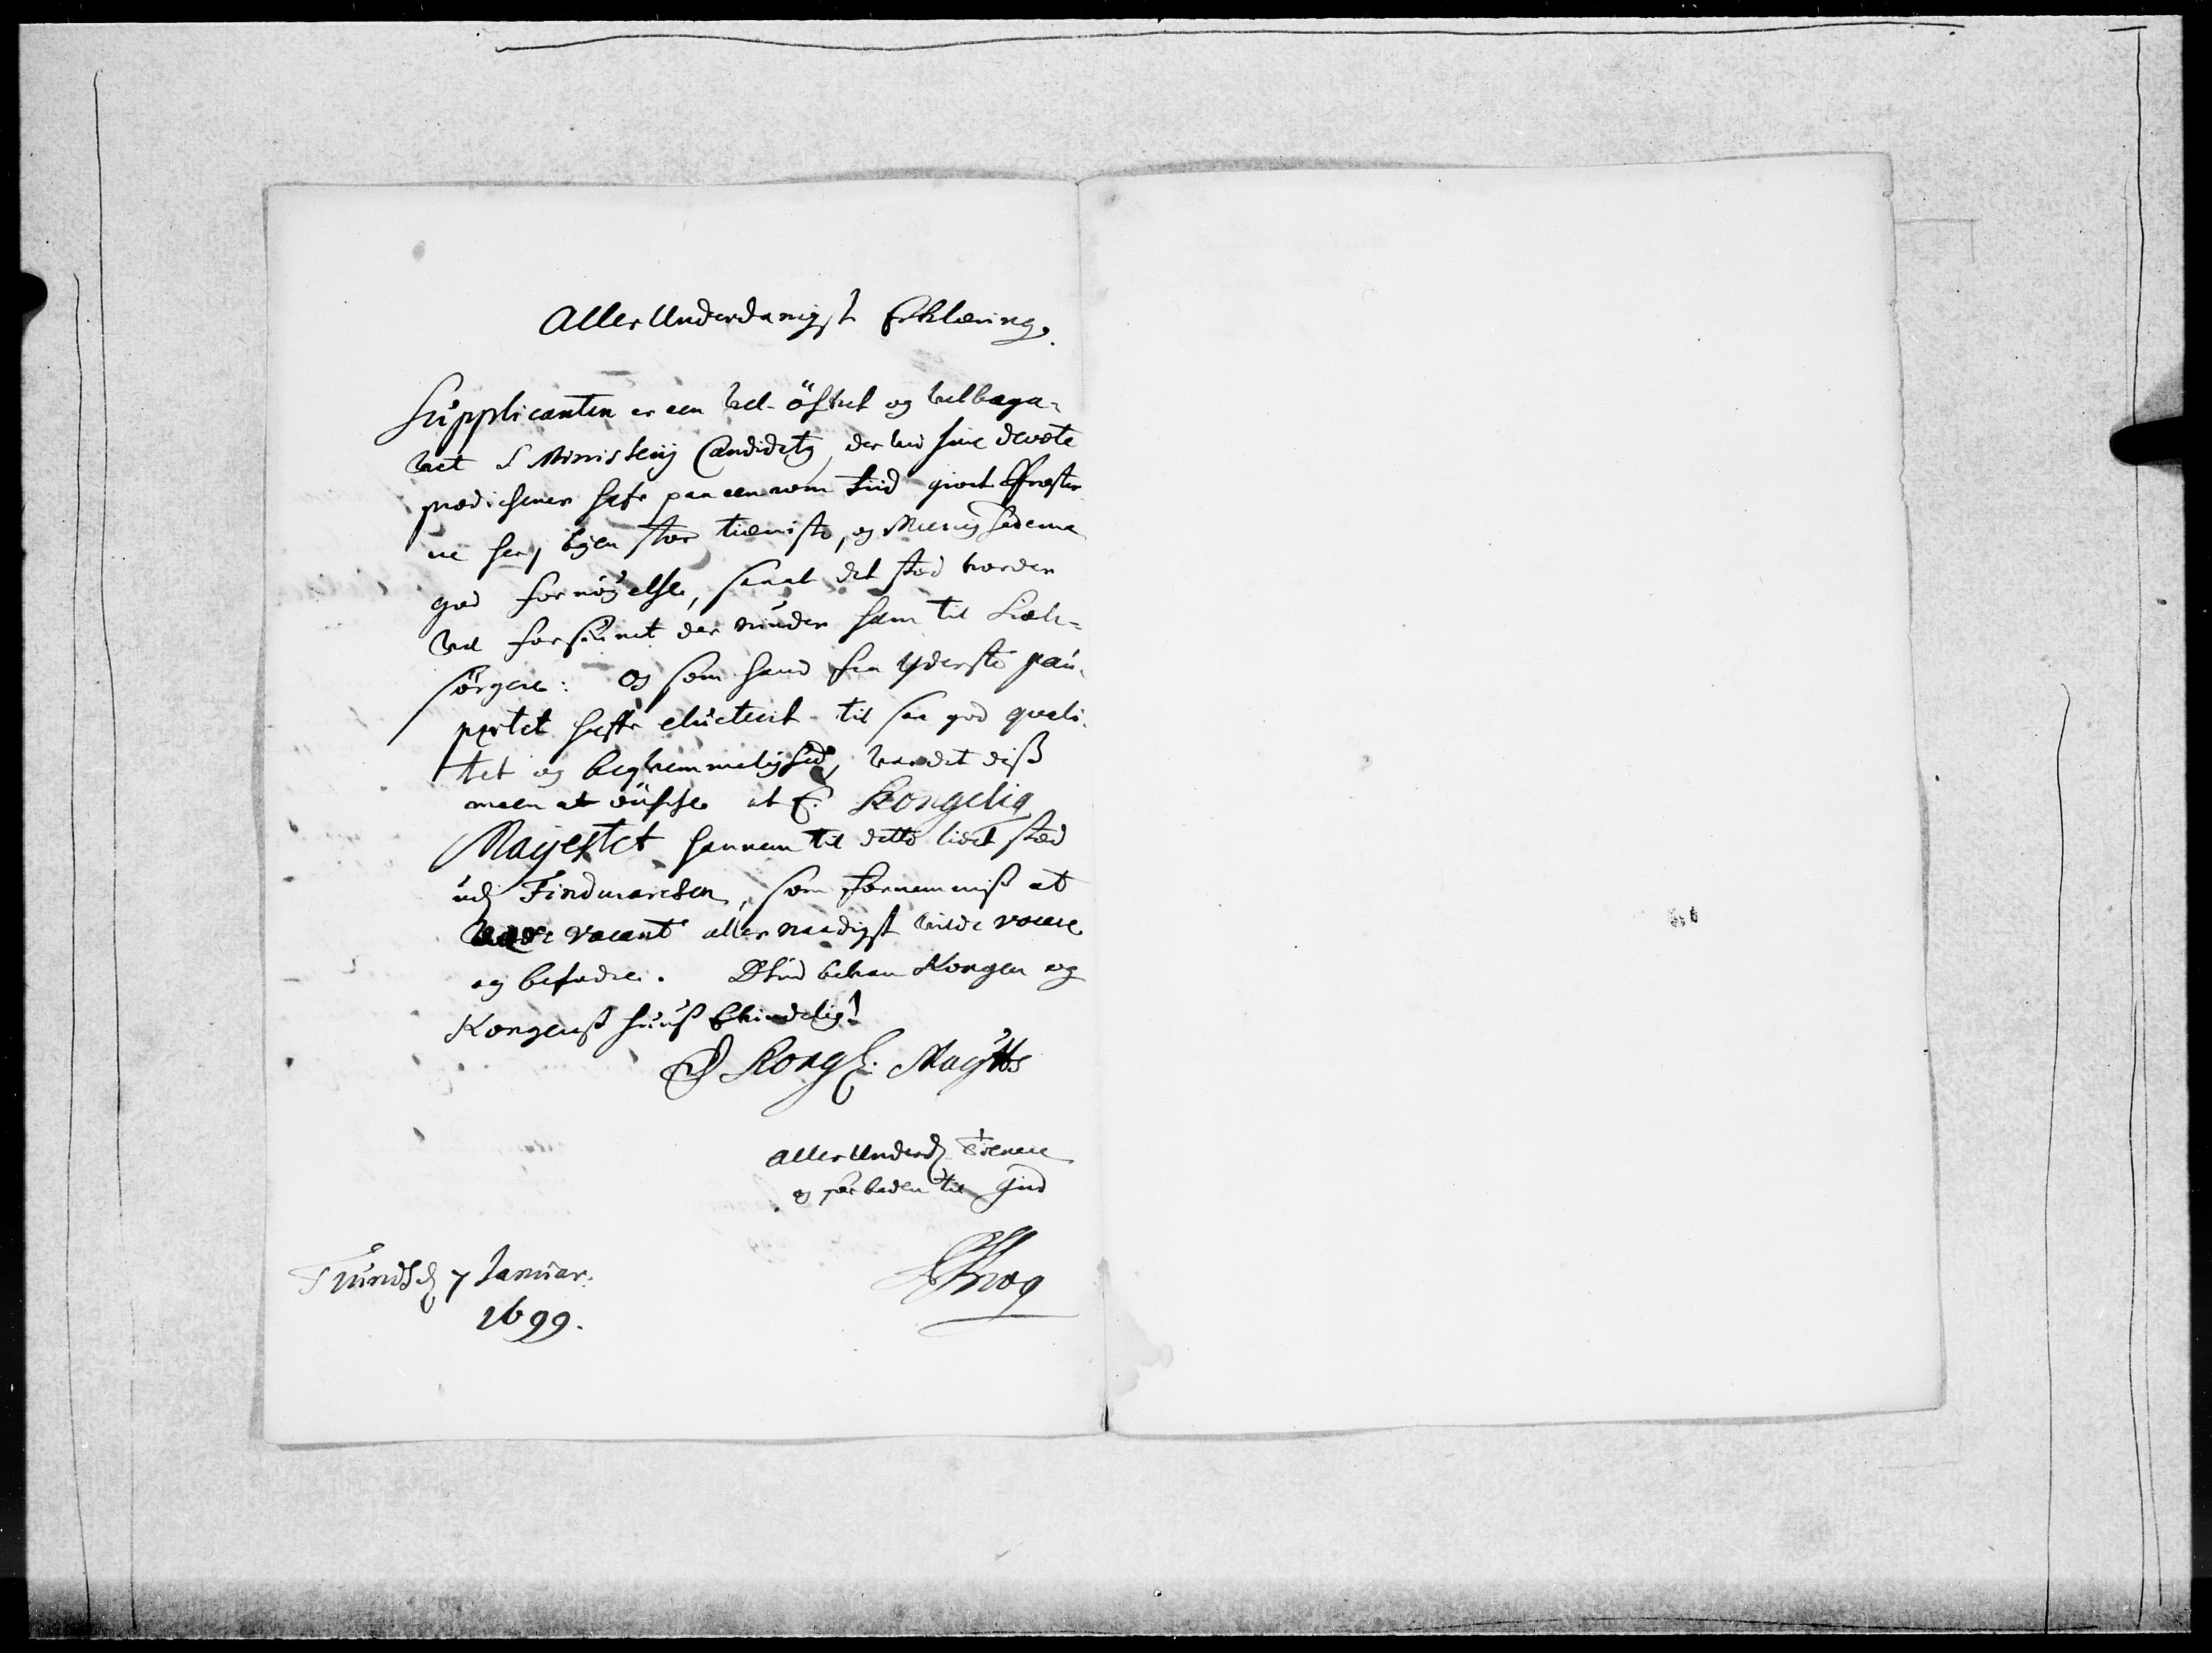 Aller Underdanigst Erklæring.
Supplicanten er een vel-öfvet og velbega-
vet S Ministerij Candidatq, der ved sine devote
prædichener hafr paa een rom tiid giort Præster
ne her j byen stor tieniste, og Menighederne
god fornöyelse, saa at det sted vorder
vel forsiünet der nünder ham til Siæle-
sörgere: Og som hand fra yderste pau-
pertet haffr elucteret til saa god qvali-
tet og beqvemmelighed, var det diss
meer at önsche at E. Kongelig
Mayestet hannem til dette lidet sted
udj Findmarcken, som fornemmis at
være vacant allernaadigst vilde vocere
og befodre. Gud bevare Kongen og
Kongenss huus Ævindelig!
E Kongl: Mayts
aller Underd. Tienere
og forbeder til Gud
PKrog
Trundh. d. 7 Januar.
1699.